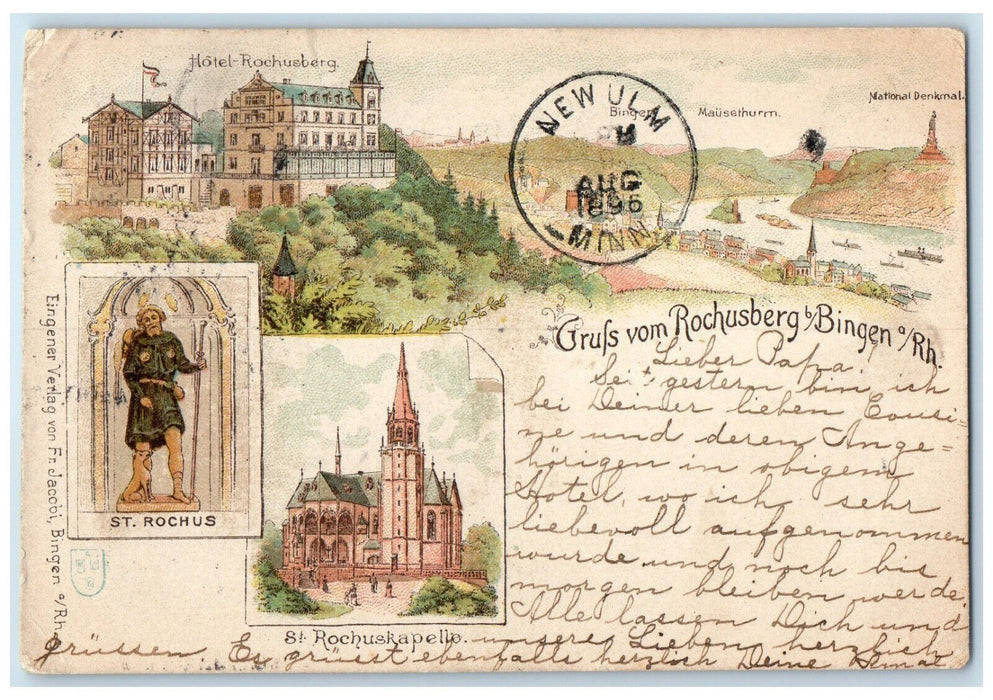 Hôtel-Rochusberg.
Bingen
Maüsethurm.
National Denkmal.
NEW ULM
AUG
1896
MINN
Gruſs vom Rochusberg b/Bingen a/Rh.
Lieber Papa!
Seit gestern bin ich
bei Deiner lieben Cousi-
ne und deren Ange-
hörigen in obigem
Hotel, wo ich sehr
liebevoll aufgenommen
wurde und noch bis
morgen bleiben werde.
Alle lassen Dich und
unsere Lieben herzlich
grüssen. Es grüsst ebenfalls herzlich Deine
ST. ROCHUS
St. Rochuskapelle.
Eingener Verlag von Fr. Jacobi, Bingen a/Rh.